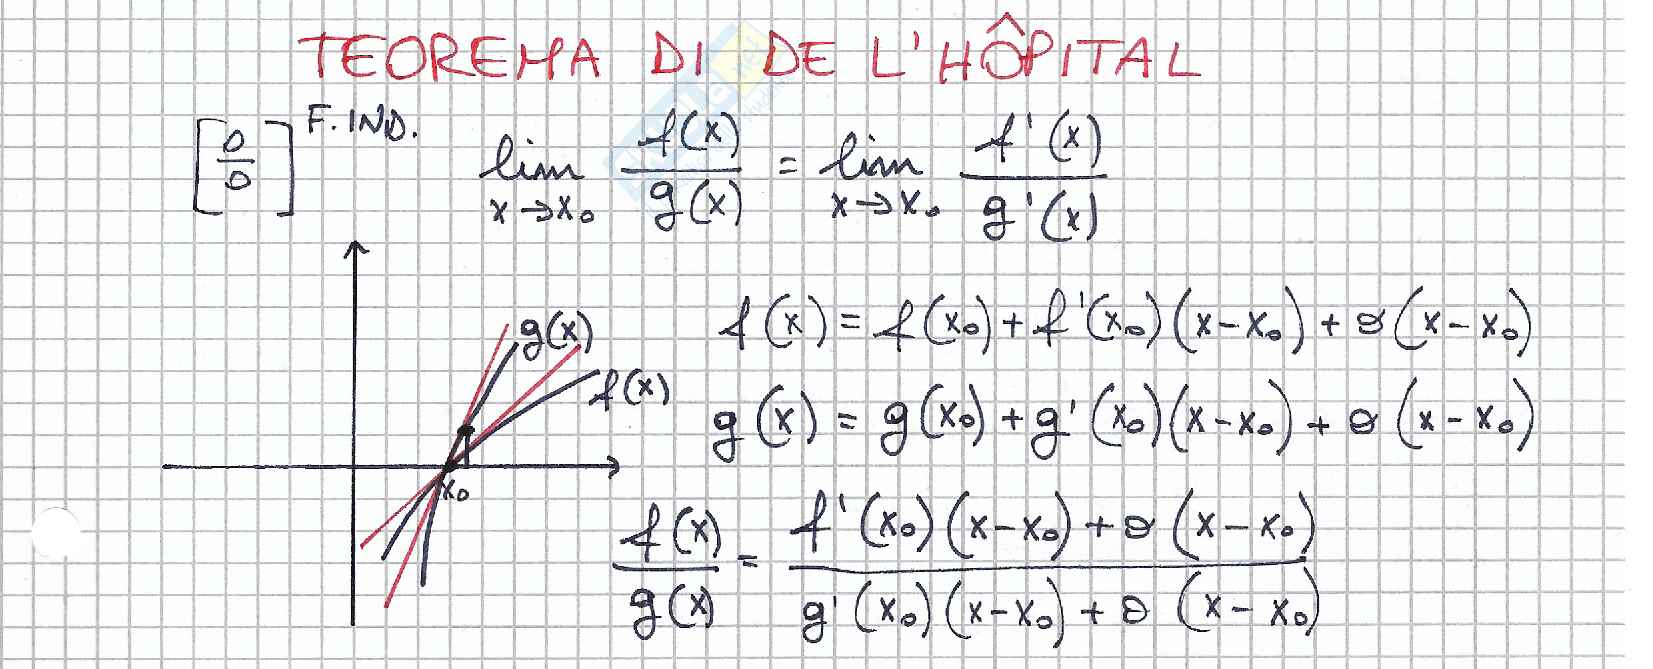 TEOREMA DI DE L'HÔPITAL
[0/0] F. IND. lim x→x₀ f(x)/g(x) = lim x→x₀ f'(x)/g'(x)
g(x)
f(x)
x₀
f(x) = f(x₀) + f'(x₀)(x-x₀) + o(x-x₀)
g(x) = g(x₀) + g'(x₀)(x-x₀) + o(x-x₀)
f(x)/g(x) = f'(x₀)(x-x₀) + o(x-x₀) / g'(x₀)(x-x₀) + o(x-x₀)